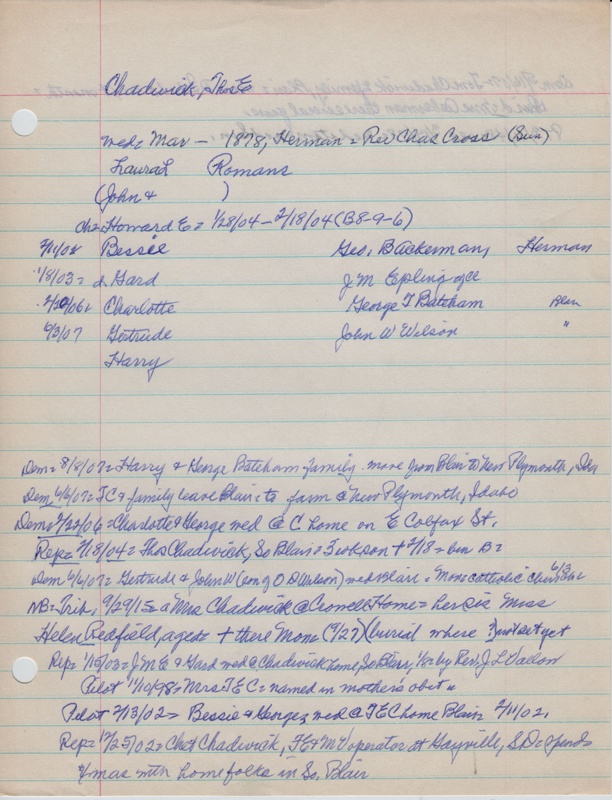 Chadwick, Thos E
wed = Mar — 1878, Herman = Rev Chas Cross (Sun)
Laura L Romans
(John & )
ch = Howard E = 1/28/04 – 2/18/04 (B8-9-6)
2/11/02 Bessie Geo. Backerman, Herman
1/8/03 = d. Gard J M Epling
2/20/06 Charlotte George T Bateham Blair
6/3/07 Gertrude John W Wilson "
Harry
Dem = 8/8/07 = Harry & George Bateham family move from Blair to New Plymouth, Ida
Dem 6/6/07 = TC & family leave Blair to farm @ New Plymouth, Idaho
Dem = 2/22/06 = Charlotte & George wed @ C home on E Colfax St.
Rep = 2/18/04 = Thos Chadwick, So Blair = 3wkson + 2/18 = bur B =
Dem 6/6/07 = Gertrude & John W (emp O D Wilson) wed Blair = Mon = catholic church 6/3
NB = Trib, 9/29/15 = a Mrs Chadwick @ Crowell Home = her sis Miss
Helen Redfield, aged + there Mon (9/27) (burial where ? not set yet
Rep = 1/15/03 = J M E & Gard wed @ Chadwick home, So Blair, by Rev J L
Pilot 11/10/98 = Mrs T E C = named in mother's obit "
Pilot 2/13/02 = Bessie & George wed @ TEC home Blair 2/11/02,
Rep = 12/25/02 = Chas Chadwick, operator at Gayville, S D = spends
Xmas with home folks in So. Blair